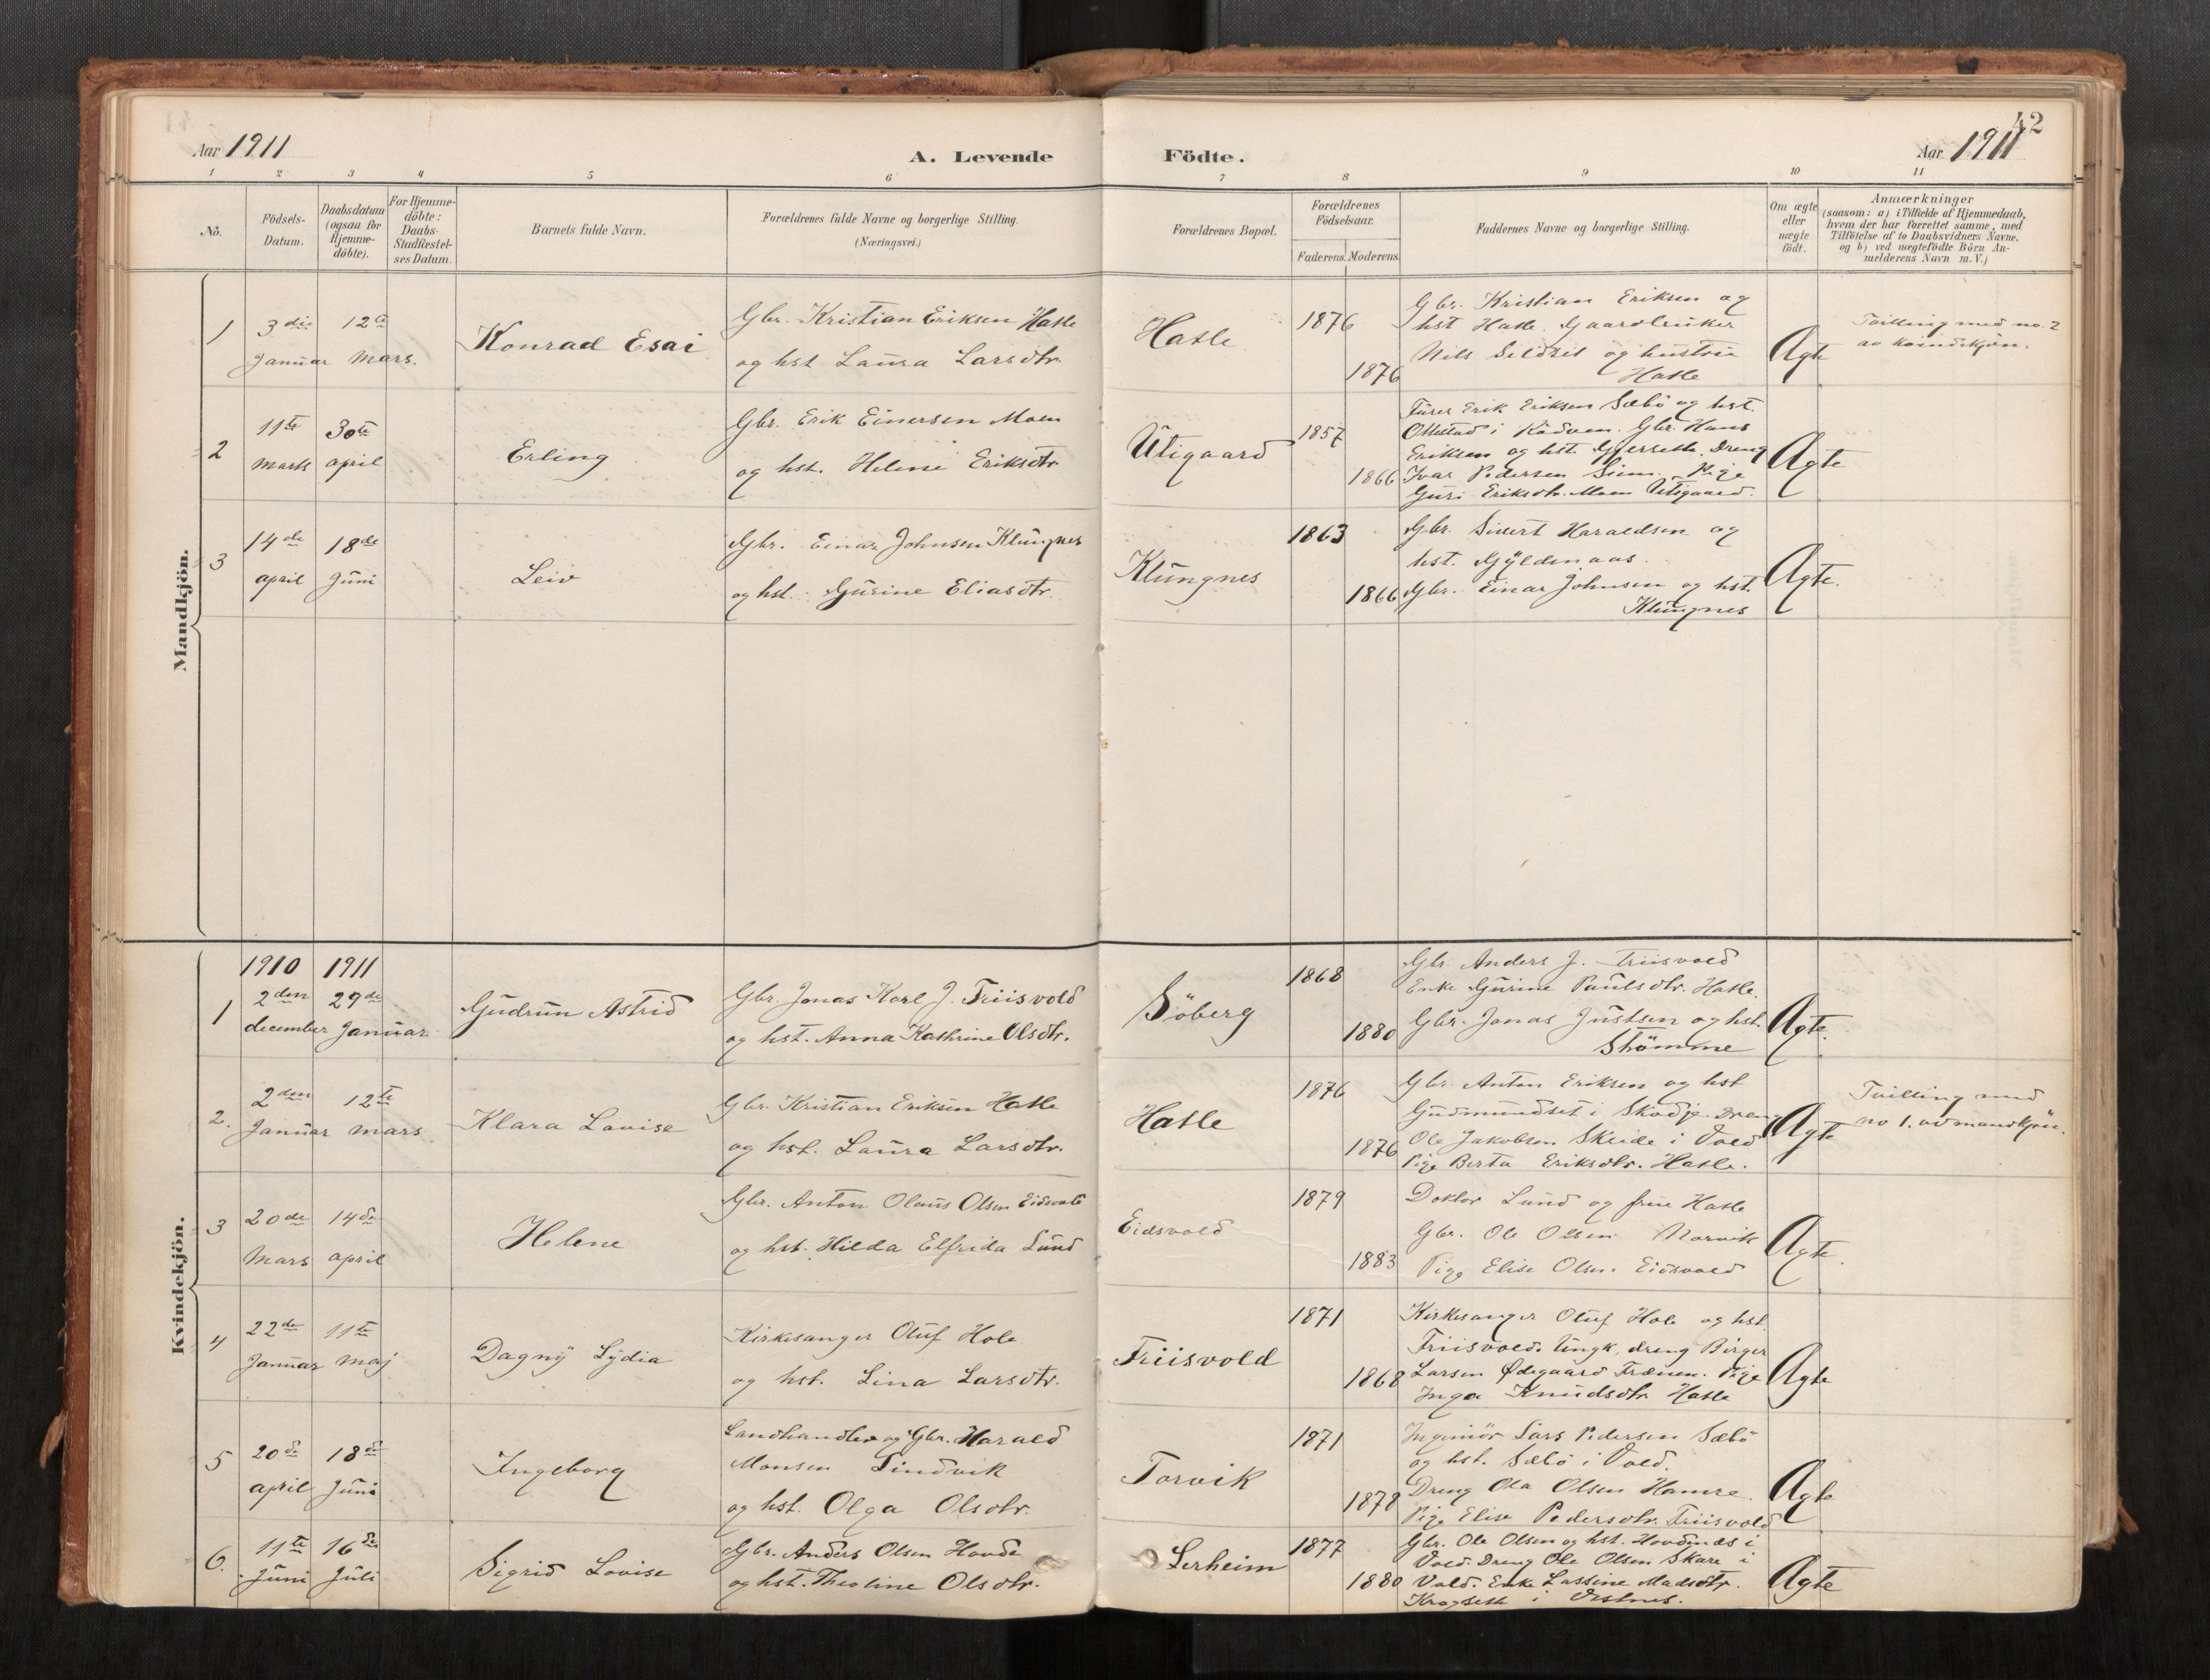 42
Aar 1911
A. Levende
Födte.
Aar 1911
1 2 3 4 5 6 7 8 9 10 11
No.
Födsels-
Datum.
Daabsdatum
(ogsaa for
Hjemme-
döbte).
For Hjemme-
döbte:
Daabs-
Stadfæstel-
ses Datum.
Barnets fulde Navn.
Forældrenes fulde Navne og borgerlige Stilling.
(Næringsvei.)
Forældrenes Bopæl.
Forældrenes
Födselsaar.
Faderens. Moderens.
Faddernes Navne og borgerlige Stilling.
Om ægte
eller
uægte
födt.
Anmærkninger
(saasom: a) i Tilfælde af Hjemmedaab,
hvem der har forrettet samme, med
Tilföielse af to Daabsvidners Navne.
og b) ved uægtefödte Börn An-
melderens Navn m. V.)
Mandkjön.
1
3die
Januar
12te
Mars.
Konrad Esai
Gbr. Kristian Eriksen Hatle
og hst Laura Larsdtr.
Hatle
1876
1876
Gbr. Kristian Eriksen og
hst Hatle. Gaardbruker
Nils Sildset og hustru
Hatle
Ægte
Tvilling med no. 2
av kvindekjøn.
2
11te
Marts
30te
april
Erling
Gbr. Erik Einersen Moen
og hst. Heline Eriksdtr.
Utigaard
1857
1866
Erik Eriksen Sæbö og hst.
i Rödven. Gbr. Hans
Eriksen og hst. Gjersette. Dreng
Ivar Pedersen Pige
Guri Eriksdtr. Moen Utigaard.
Ægte
3
14de
april
18de
Juni
Leiv
Gbr. Einar Johnsen Klungnes
og hst. Gurine Eliasdtr.
Klungnes
1863
1866
Gbr. Sivert Haraldsen og
hst. Gyldenaas.
Gbr. Einar Johnsen og hst.
Klungnes
Ægte.
Kvindekjön.
1910 1911
1
2den
december
29de
Januar
Gudrun Astrid
Gbr. Jonas Karl J. Friisvold
og hst. Anna Kathrine Olsdtr.
Söberg
1868
1880
Gbr. Anders J. Friisvold
Enke Gurine Paulsdtr. Hatle.
Gbr. Jonas Justsen og hst.
Strömme
Ægte.
2.
2den
Januar
12te
Mars.
Klara Lovise
Gbr. Kristian Eriksen Hatle
og hst. Laura Larsdtr.
Hatle
1876
1876
Gbr. Anton Eriksen og hst
Gudmundset i Skodje. Dreng
Ole Jakobsen Skeide i Vold
Pige Berta Eriksdtr. Hatle.
Ægte
Tvilling med
no 1. av mandkjön.
3
20de
Mars
14de
april
Helene
Gbr. Anton Olaus Olsen Eidsvold
og hst. Hilda Elfrida Lund
Eidsvold
1879
1883
Doktor Lund og frue Hatle
Gbr. Ole Olsen Norvik
Pige Elise Olsen Eidsvold
Ægte.
4
22de
Januar
11te
Maj
Dagny Lydia
Kirkesanger Oluf Hole
og hst. Lina Larsdtr.
Friisvold
1871
1868
Kirkesanger Oluf Hole og hst.
Friisvold. Ungk. dreng Birger
Larsen Ødegaard Frænen. Pige
Inga Knudsdtr. Hatle
Ægte
5
20de
april
18de
Juni
Ingeborg
Landhandler og Gbr. Harald
Monsen Lindvik
og hst. Olga Olsdtr.
Torvik
1871
1878
Ingeniör Lars Pedersen Sæbö
og hst. Sæbö i Vold.
Dreng Ola Olsen Hamre.
Pige Elise Pedersdtr. Friisvold
Ægte
6.
11te
Juni
16de
Juli
Sigrid Lovise
Gbr. Anders Olsen Hovde
og hst. Theoline Olsdtr.
Lerheim
1877
1880
Gbr. Ole Olsen og hst. Hovdenæs i
Vold. Dreng Ole Olsen Skare i
Vold. Enke Lassine Madsdtr.
i Vestnes.
Ægte